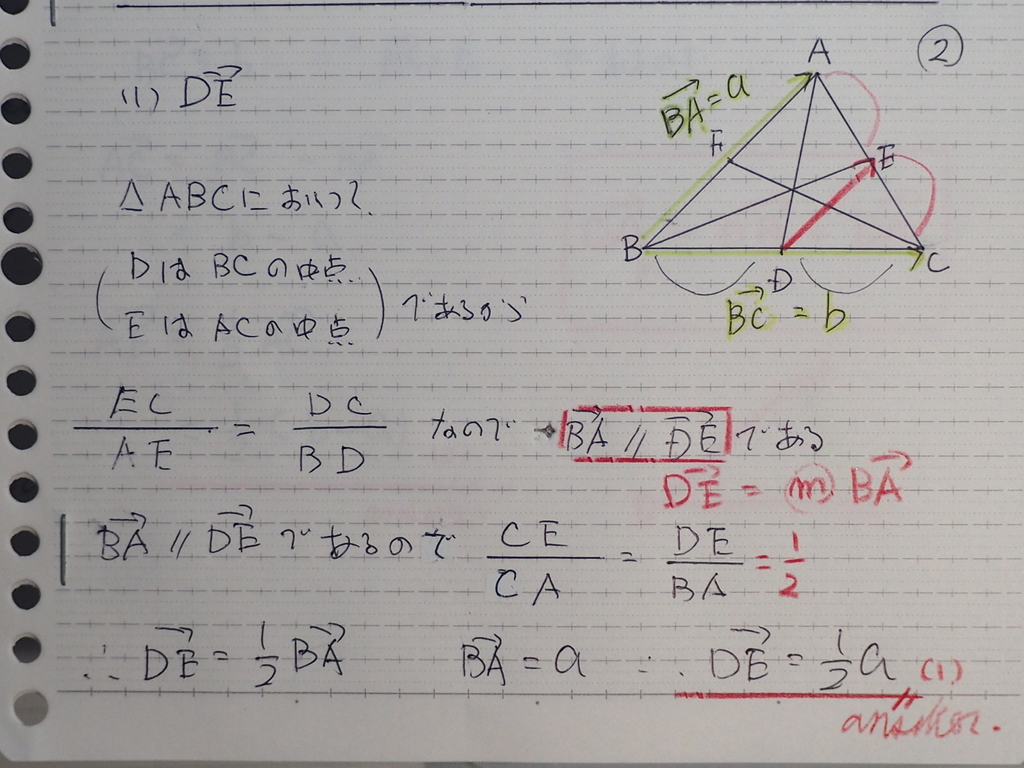 ②
(1) DE→
A
BA→ = a
F
E
△ABCにおいて、
B
D
C
DはBCの中点
BC→ = b
EはACの中点
であるから
EC/AE = DC/BD なので → BA→ // DE→ である
DE→ = m BA→
BA→ // DE→ であるので CE/CA = DE/BA = 1/2
∴ DE→ = 1/2 BA→ BA→ = a ∴ DE→ = 1/2 a (1)
answer.